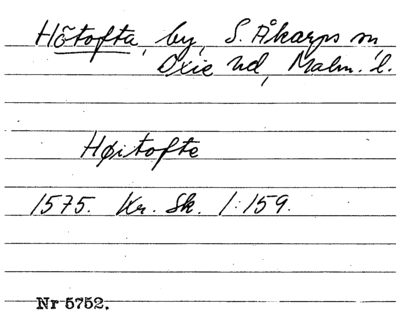 Hötofta, by, S. Åkarps sn,
Oxie hd, Malm. l.
Høitofte
1575. Kr. Sk. 1:159.
Nr 5752.